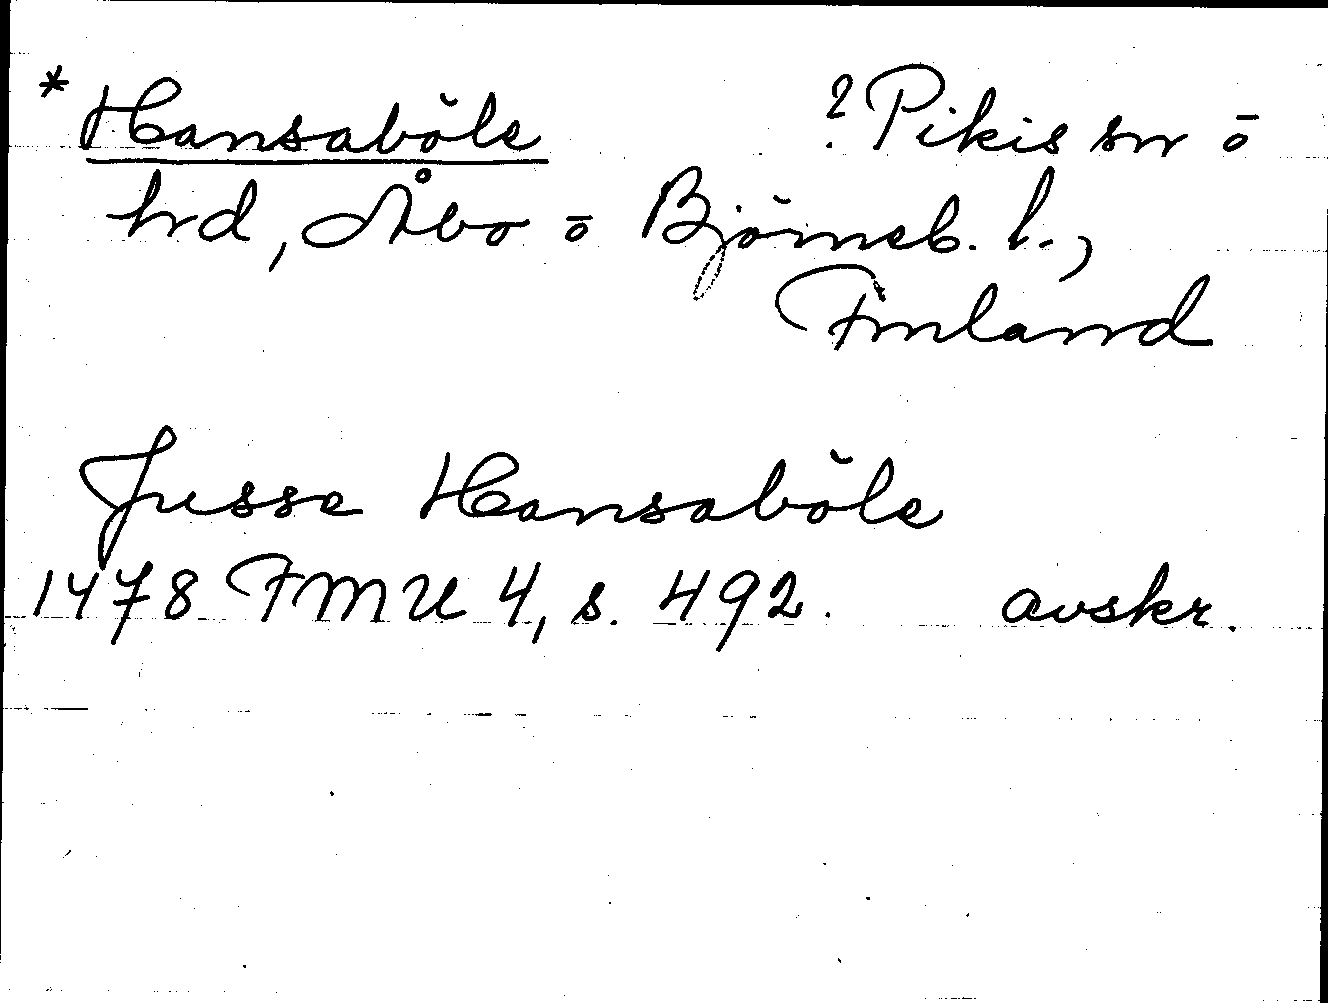 * Hansaböle ? Pikis sn ō
hd, Åbo ō Björneb. l.,
Finland
Jusse Hansaböle
1478 FMU 4, s. 492. avskr.